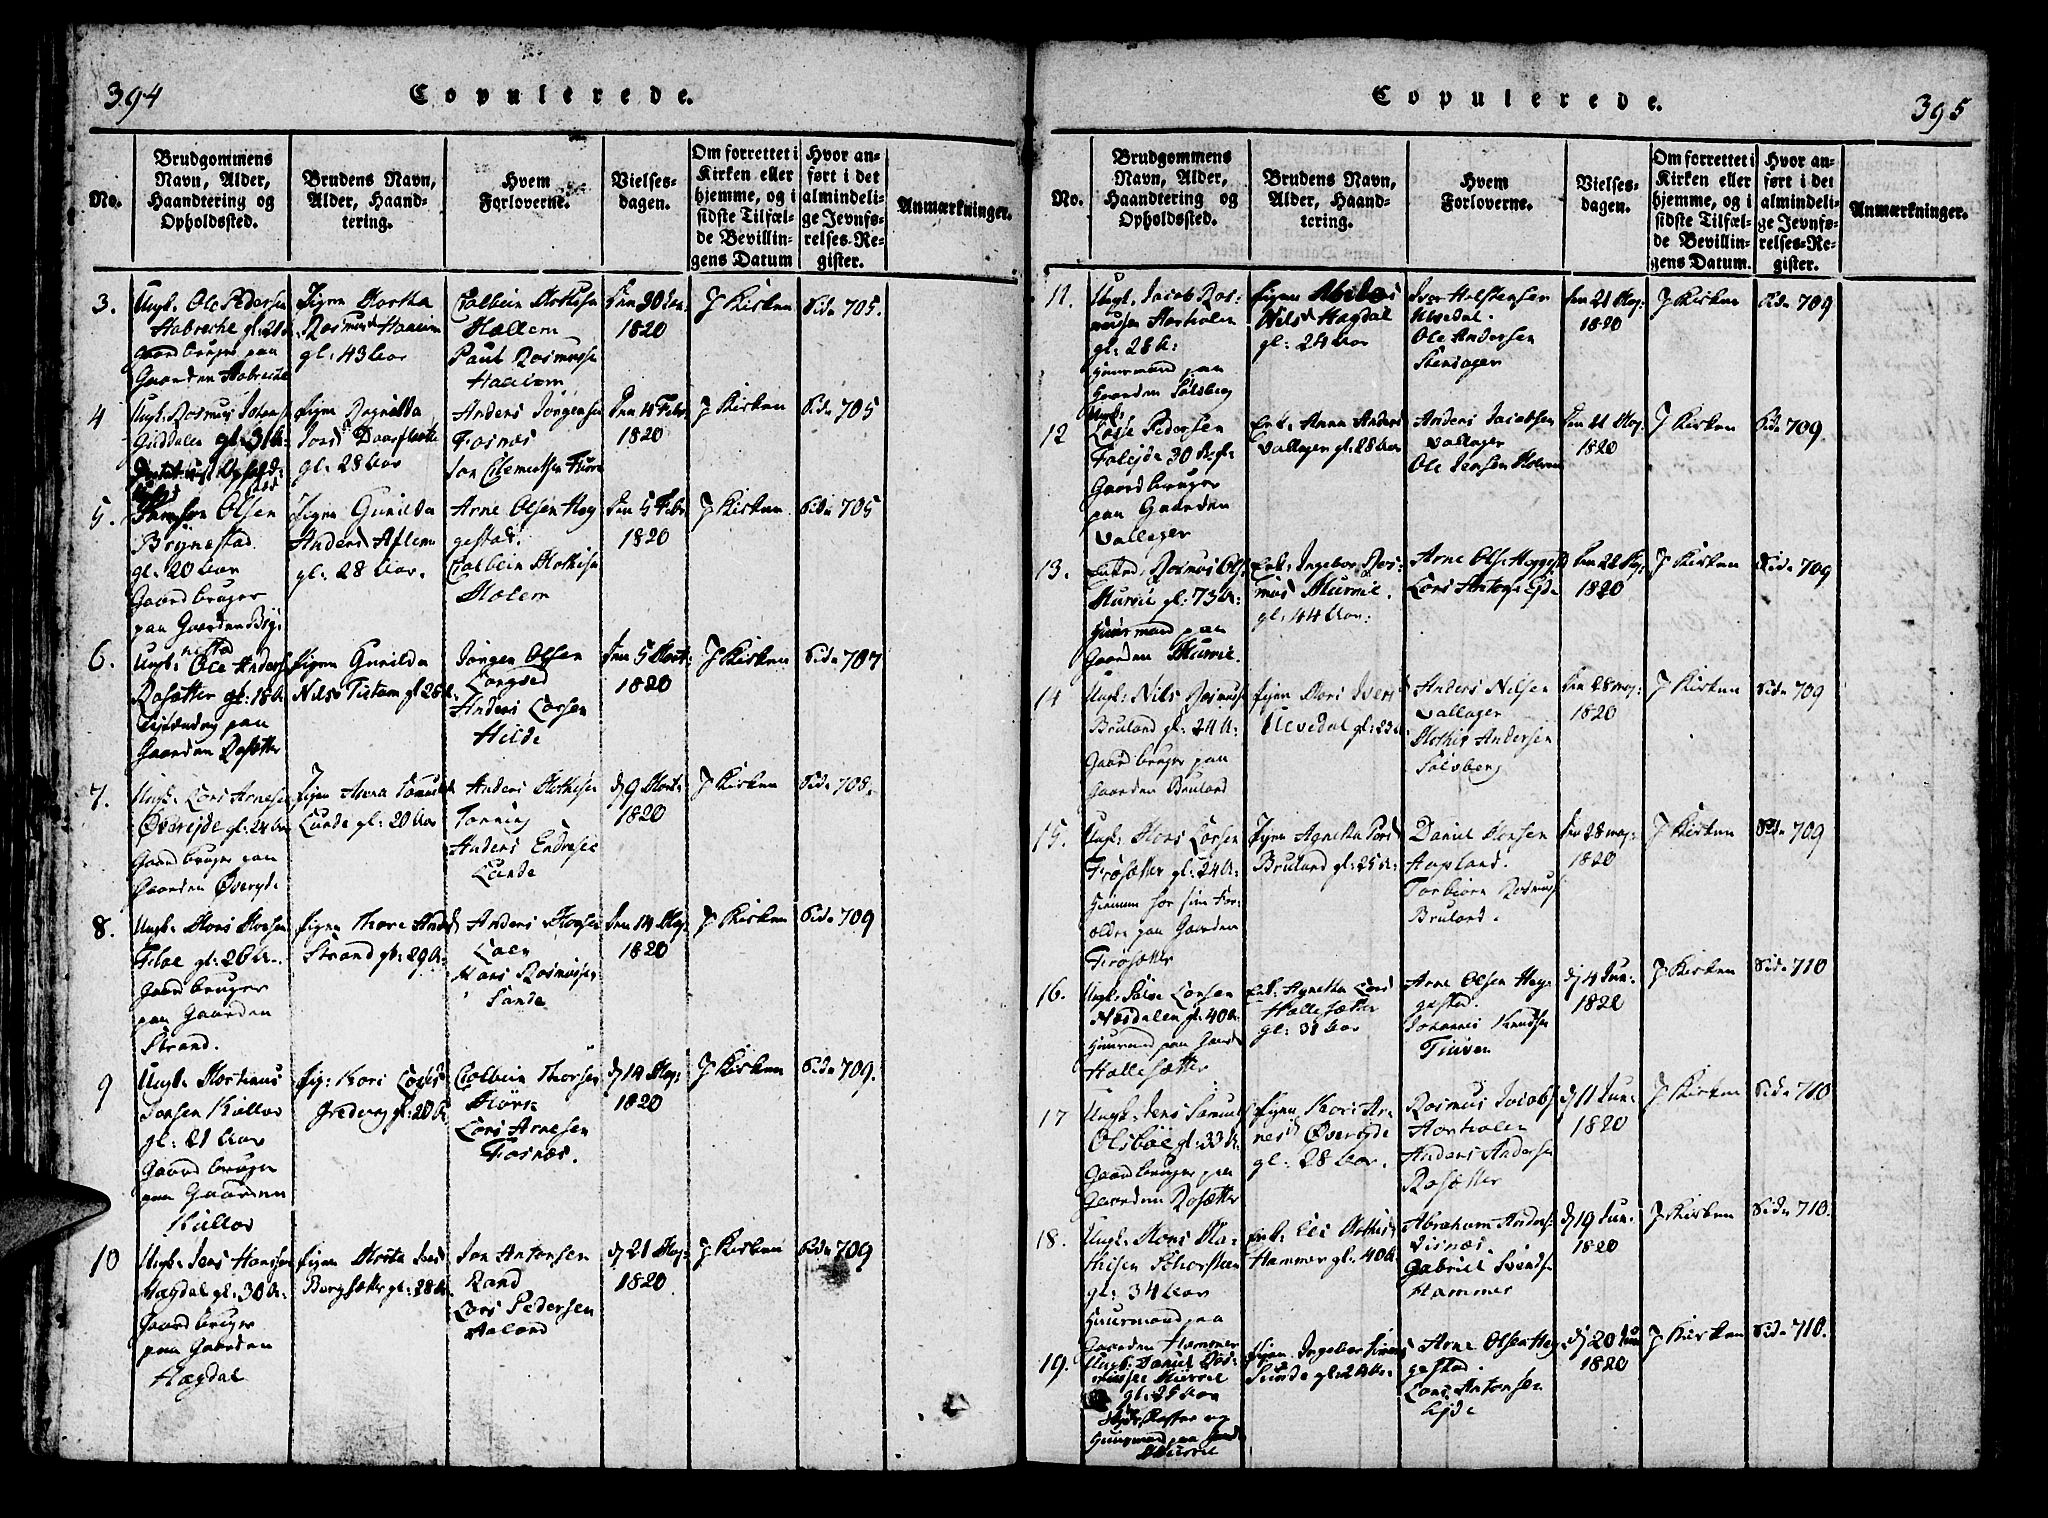 394
Copulerede.
No.
Brudgommens
Navn, Alder,
Haandtering og
Opholdssted.
Brudens Navn,
Alder, Haand-
tering.
Hvem
Forloverne.
Vielses-
dagen.
Om forrettet i
Kirken eller
hjemme, og i
sidste Tilfæl-
de Bevillin-
gens Datum
Hvor an-
ført i det
almindeli-
ge Jevnfø-
relses-Re-
gister.
Anmærkninger.
3.
Ungk: Ole Pedersen
Aabreche gl: 21
Gaardbruger paa
Gaarden Aabreche
Pigen Martha
Rasmusd
gl: 43 Aar
Colbein
Hallem
Paul Rasmussen
Den 30 Jan:
1820
J Kirken
Side 705.
4
Ungk: Rasmus Johans
Giddalen gl: 31 A:
Pigen Ragnilda
Lars Daarflaate
gl: 28 Aar
Anders Jørgensen
Fosnæs
Jon Clemetsen
Den Febr
1820
J Kirken
Side 705
5.
Olsen
Brynestad
gl: 20 Aar
Gaardbruger
paa Gaarden Bry-
nestad
Pigen Gunilda
Anders Aflem
gl: 28 Aar.
Arne Olsen Heg
gestad.
Colbein
Holem
Den 5 Febr
1820
J Kirken
Side 705
6.
Ungk: Ole Anders
Rosætter gl: 18 A:
paa
Gaarden Rosætter
Pigen Gunilda
Nilsd Tistam gl 26
Jørgen Olsen
Langsed
Anders Larsen
Hilde
Den 5 Mart:
1820
J Kirken
Side 707
7.
Ungk: Lars Arnesen
Øvreeide gl: 24 Aar
Gaardbruger paa
Gaarden Øvreyde
Pigen Anna
Lunde gl: 20 Aar
Anders
Tonning
Anders Endresen
Lunde
d 9 Mart:
1820
J Kirken
Side 708.
8.
Ungk: Mons
Floe gl: 26 A:
Gaardbruger
paa Gaarden
Strand.
Pigen Thore Andsd
Strand gl: 29 A:
Anders
Loen
Hans Rasmussen
Sande
Den 14 May
1820
J Kirken
Side 709
9
Ungk: Martinus
Jensen Kullar
gl: 21 Aar
Gaardbruger
paa Gaarden
Kullar
Pig: Kari Larsd
gl: 20 A
Colbein Thorsen
Mörk
Lars Arnesen
Fosnæs.
d 14 May:
1820
J Kirken
Side 709.
10
Ungk: Jens Hansen
Hægdal gl: 30 A:
Gaardbruger
paa Gaarden
Hægdal
Pigen
Borgsætter gl: 28 A:
Jon Antonsen
Rand
Lars Pedersen
Aaland
d 21 May:
1820
J Kirken
Side 709
395
Copulerede.
No.
Brudgommens
Navn, Alder,
Haandtering og
Opholdssted.
Brudens Navn,
Alder, Haand-
tering.
Hvem
Forloverne.
Vielses-
dagen.
Om forrettet i
Kirken eller
hjemme, og i
sidste Tilfæl-
de Bevillin-
gens Datum.
Hvor an-
ført i det
almindeli-
ge Jevnfø-
relses-Re-
gister.
Anmærkninger.
11.
Ungk: Jacob Ras-
mussen Aarholen
gl: 28 A:
Huusmand paa
Gaarden Solsberg
Pigen
Nilsd Hagdal
gl: 24 Aar
Iver Holstensen
Ulvedal.
Ole Andersen
Stensager
Den 21 May:
1820
J Kirken
Side 709
12
Ungk:
Lasse Pedersen
Faleyde 30
Gaardbruger
paa Gaarden
Vallager
Enk: Anna Anders
Vallager gl: 28 Aar
Anders Jacobsen
Vallager
Ole Jensen Holmen
Den 21 May
1820
J Kirken
Side 709.
13.
Enkm: Rasmus Ols
Murrie gl: 73 A:
Huusmand paa
Gaarden Murrie.
Enk: Ingebor Ras-
mus Murrie.
gl: 44 Aar:
Arne Olsen
Lars Antons Eyde
Den 22 May:
1820
J Kirken
Side 709
14
Ungk: Nils Rasmus
Bruland gl: 24 A:
Gaardbruger paa
Gaarden Bruland
Pigen Mari Iversd
Ulvedal gl: 23
Anders Nilsen
Vallager
Mathis Andersen
Solsberg
Den 28 may:
1820
J Kirken
Side 709
15.
Ungk: Mons Larsen
Frøsætter gl: 24 A:
Hiemme hos sine For-
ældre paa Gaarden
Frøsætter
Pigen Agnetha
Bruland gl: 25 A:
Daniel Hansen
Aapland.
Torbiørn Rasmus
Bruland.
Den 28 may:
1820
J Kirken
Side 709
16.
Ungk: Larsen
Næsdalen gl: 40 A:
Huusmand paa Gaard
Hallesætter
Enk: Agnetha Larsd
Hallesætter
gl: 31 Aar
Arne Olsen Heg-
gestad.
Johannes Knudsen
Tinven
d 4 Jun:
1820
J Kirken
Side 710
17
Ungk: Jens Samuels
Olsbøe gl: 33 A:
Gaardbruger paa
Gaarden Rosætter
Pigen Kari Ar-
nesd Øvreyde
gl: 28 Aar.
Rasmus Jacobs
Aarholen
Anders Andersen
Rosætter
d 11 Jun:
1820
J Kirken
Side 710
18.
Ungk: Mons Ma-
thisen Skorsteen
gl: 34 Aar
Huusmand paa
Gaarden Hammer
Enk: Eli Mathis
Hammer gl: 40 A
Abraham Anders
Visnæs.
Gabriel Svends
Hammer
d 19 Jun:
1820
J Kirken
Side 710.
19.
Ungk: Daniel Ras-
mussen Murrie
gl: 25 Aar
og
Huusmand paa
Murrie
Pigen Ingebor
Sunde gl: 24 A:
Arne Olsen Heg
gestad.
Lars Antonsen
Eyde
d 20 Jun
1820
J Kirken
Side 710.